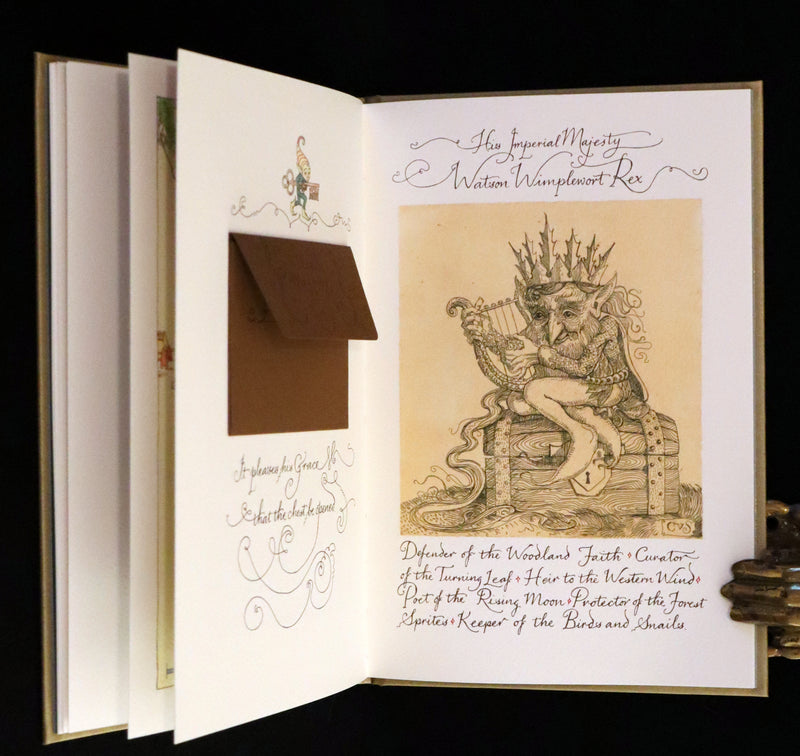 It pleases his Grace
that the chest be opened
His Imperial Majesty
Watson Wimplewort Rex
CVS
Defender of the Woodland Faith • Curator
of the Turning Leaf • Heir to the Western Wind •
Poet of the Rising Moon • Protector of the Forest
Sprites • Keeper of the Birds and Snails.